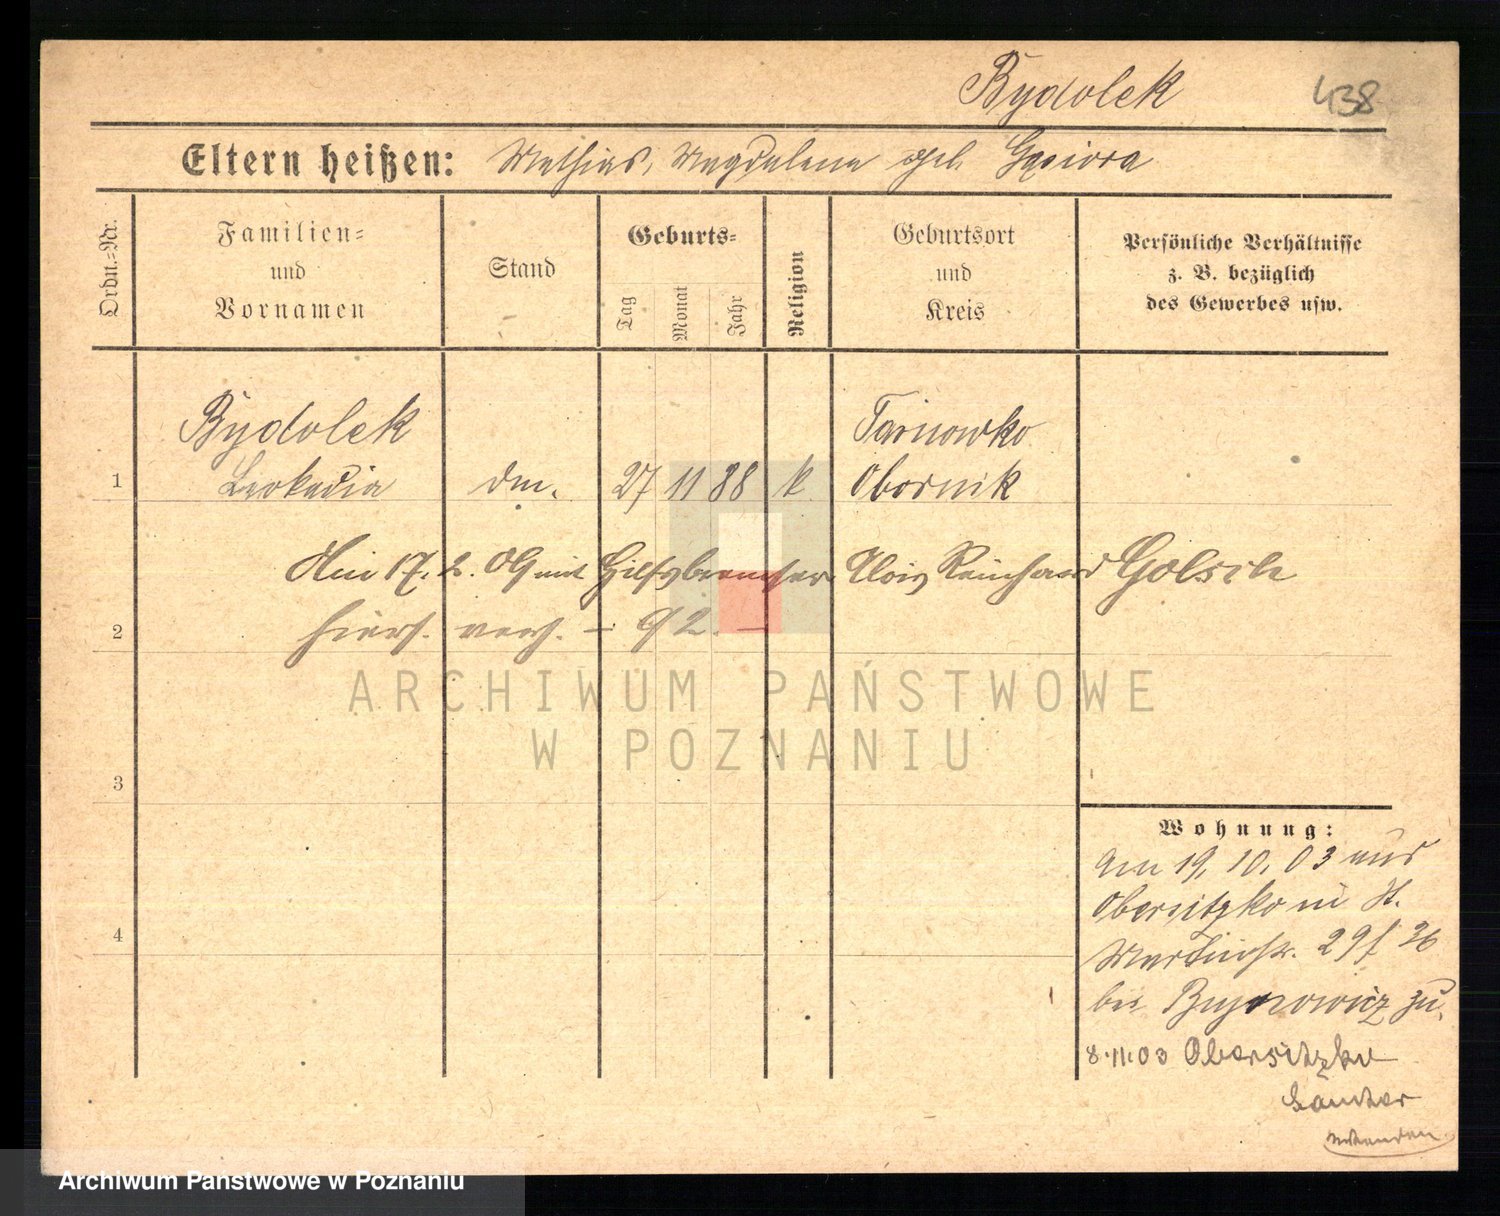 Bydolek 438
Eltern heißen: Mathias, Magdalena geb. Gąsiora
Ordn.-Nr.
Familien-
und
Vornamen
Stand
Geburts-
Tag
Monat
Jahr
Religion
Geburtsort
und
Kreis
Persönliche Verhältnisse
z. B. bezüglich
des Gewerbes usw.
Bydolek Tarnowko
1 Leokadia 27 11 88 k Obornik
17. 2. 09 mit Alois Reinhard Golsch
2 hiers. 92.
3
4
Wohnung:
Am 19. 10. 03 aus
Obersitzko in St.
Martinstr. 29
bei zu.
8.11.03 Obersitzko
ARCHIWUM PAŃSTWOWE
W POZNANIU
Archiwum Państwowe w Poznaniu